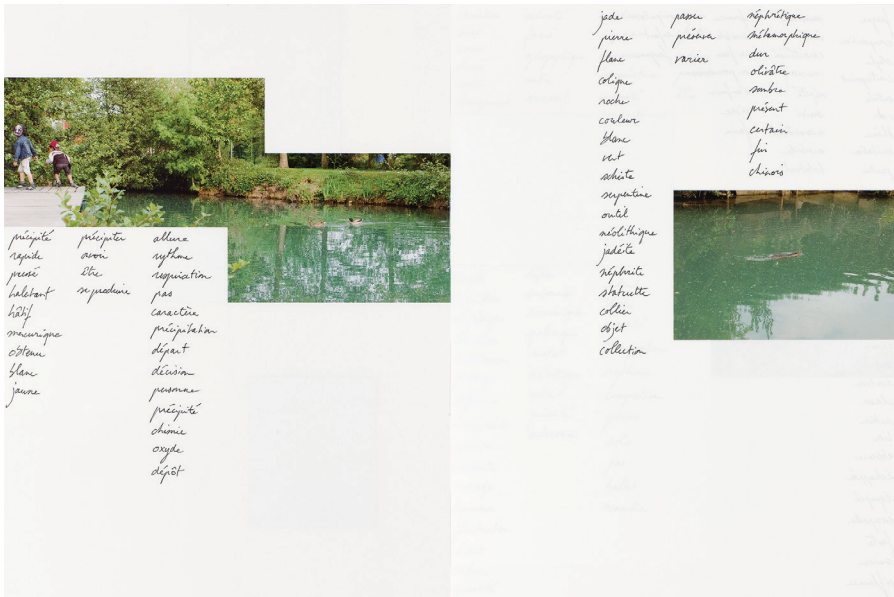 précipité
rapide
pressé
haletant
hâtif
mercurique
obtenu
blanc
jaune
précipiter
avoir
être
se produire
allure
rythme
respiration
pas
caractère
précipitation
départ
décision
personne
précipité
chimie
oxyde
dépôt
jade
pierre
flanc
colique
roche
couleur
blanc
vert
schiste
serpentine
outil
néolithique
jadéite
néphrite
statuette
collier
objet
collection
passer
préserver
varier
néphrétique
métamorphique
dur
olivâtre
sombre
présent
certain
fin
chinois